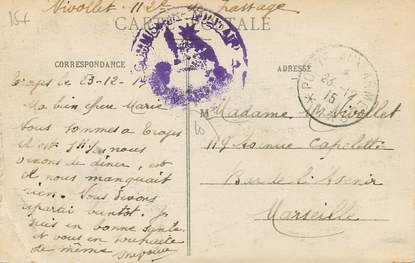 15f
Nivollet - 112e de passage
CARTE POSTALE
CORRESPONDANCE
ADRESSE
Troyes le 23-12-1
Ma bien chère Marie
Nous sommes à Troyes
il est 7h½ nous
venons de dîner, et
il nous manquait
rien. Nous devons
repartir bientôt. Je
suis en bonne santé
et vous en souhaite
de même
M Madame Nivollet
119 Avenue Capelette
Bar de l'Avenir
Marseille